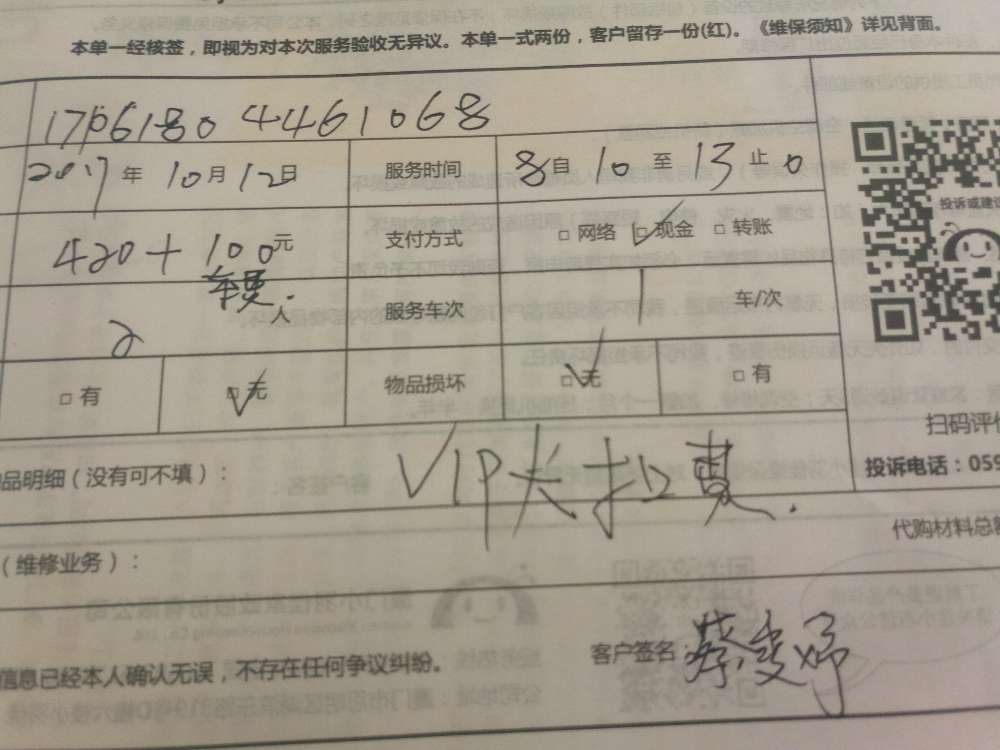 本单一经核签，即视为对本次服务验收无异议。本单一式两份，客户留存一份(红)。《维保须知》详见背面。
1706180 4461068
2017年10月12日 服务时间 8自10至13止0
420+100元 支付方式 □网络 □现金 □转账
车费.
2人 服务车次 1 车/次
□有 □无 物品损坏 □无 □有
投诉或建议
扫码评价
品明细（没有可不填）： VIP 投诉电话：059
代购材料总额
（维修业务）：
信息已经本人确认无误，不存在任何争议纠纷。 客户签名：蔡雯婷